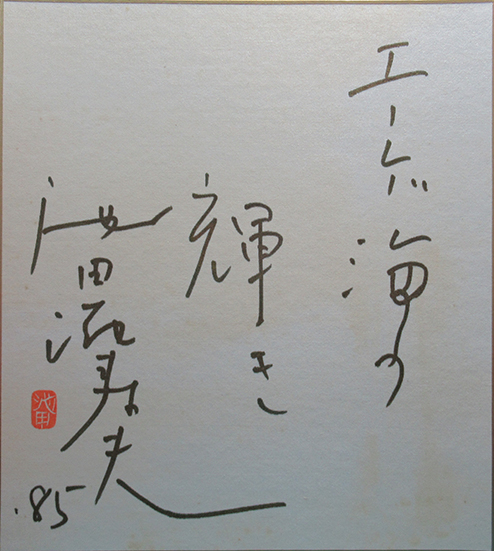 エーゲ海の
輝き
池田満寿夫
'85
池田